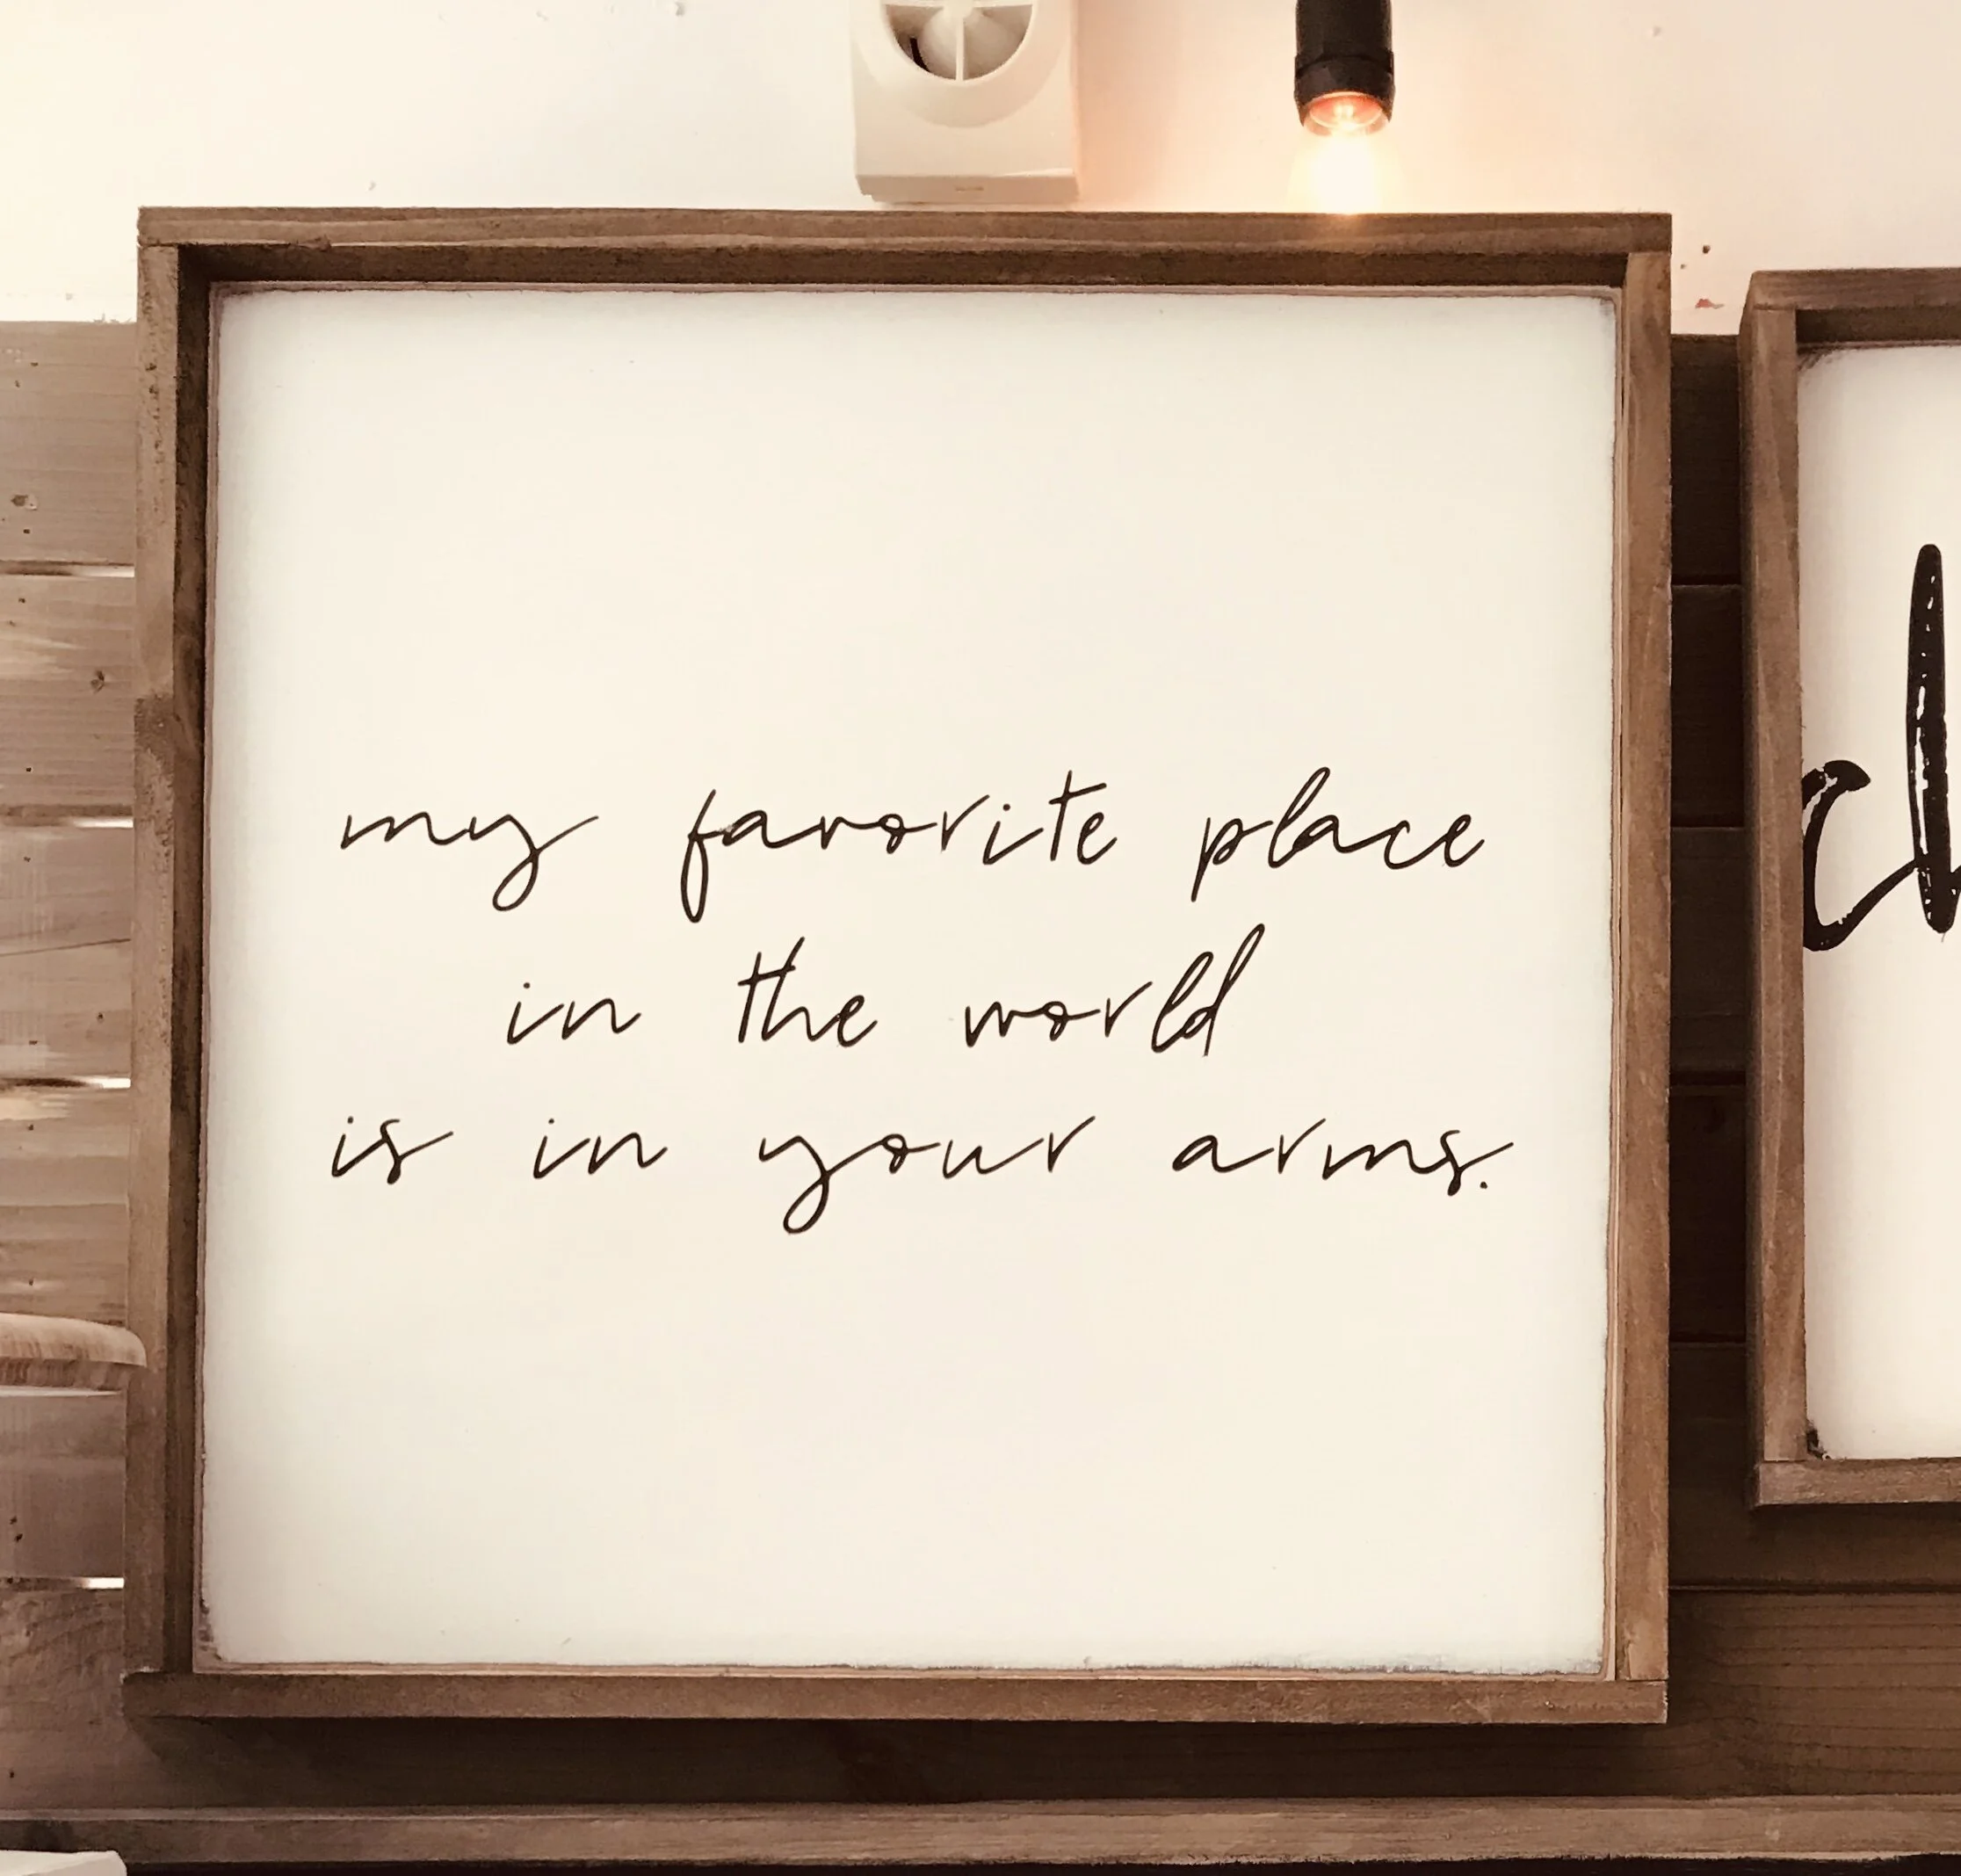 my favorite place
in the world
is in your arms.